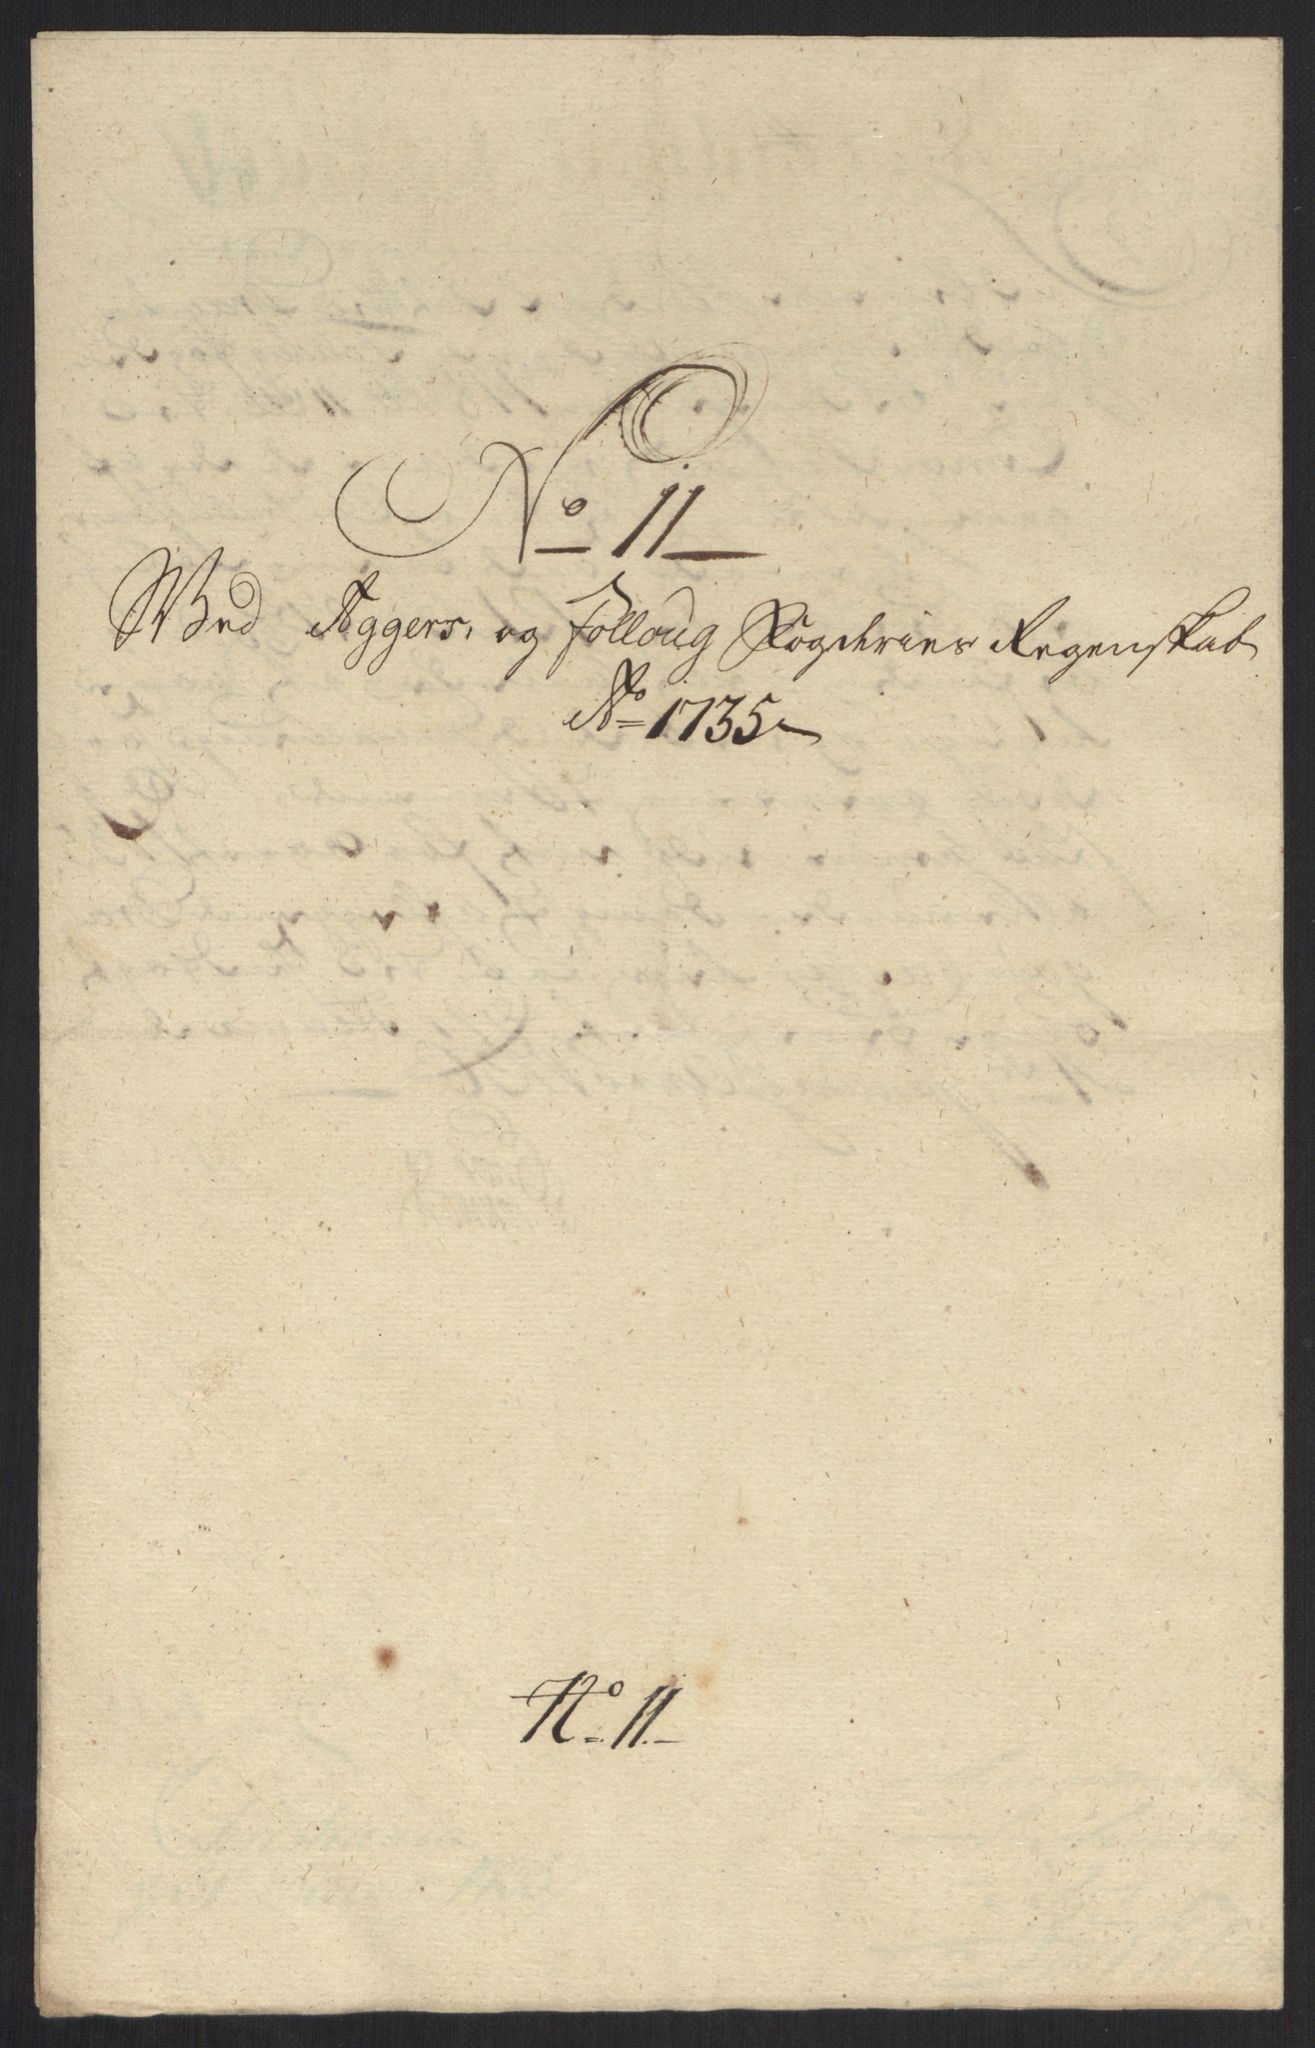 No 11
Wed Aggers, og folloug Fogderies Regenskab
Ao 1735
No. 11.